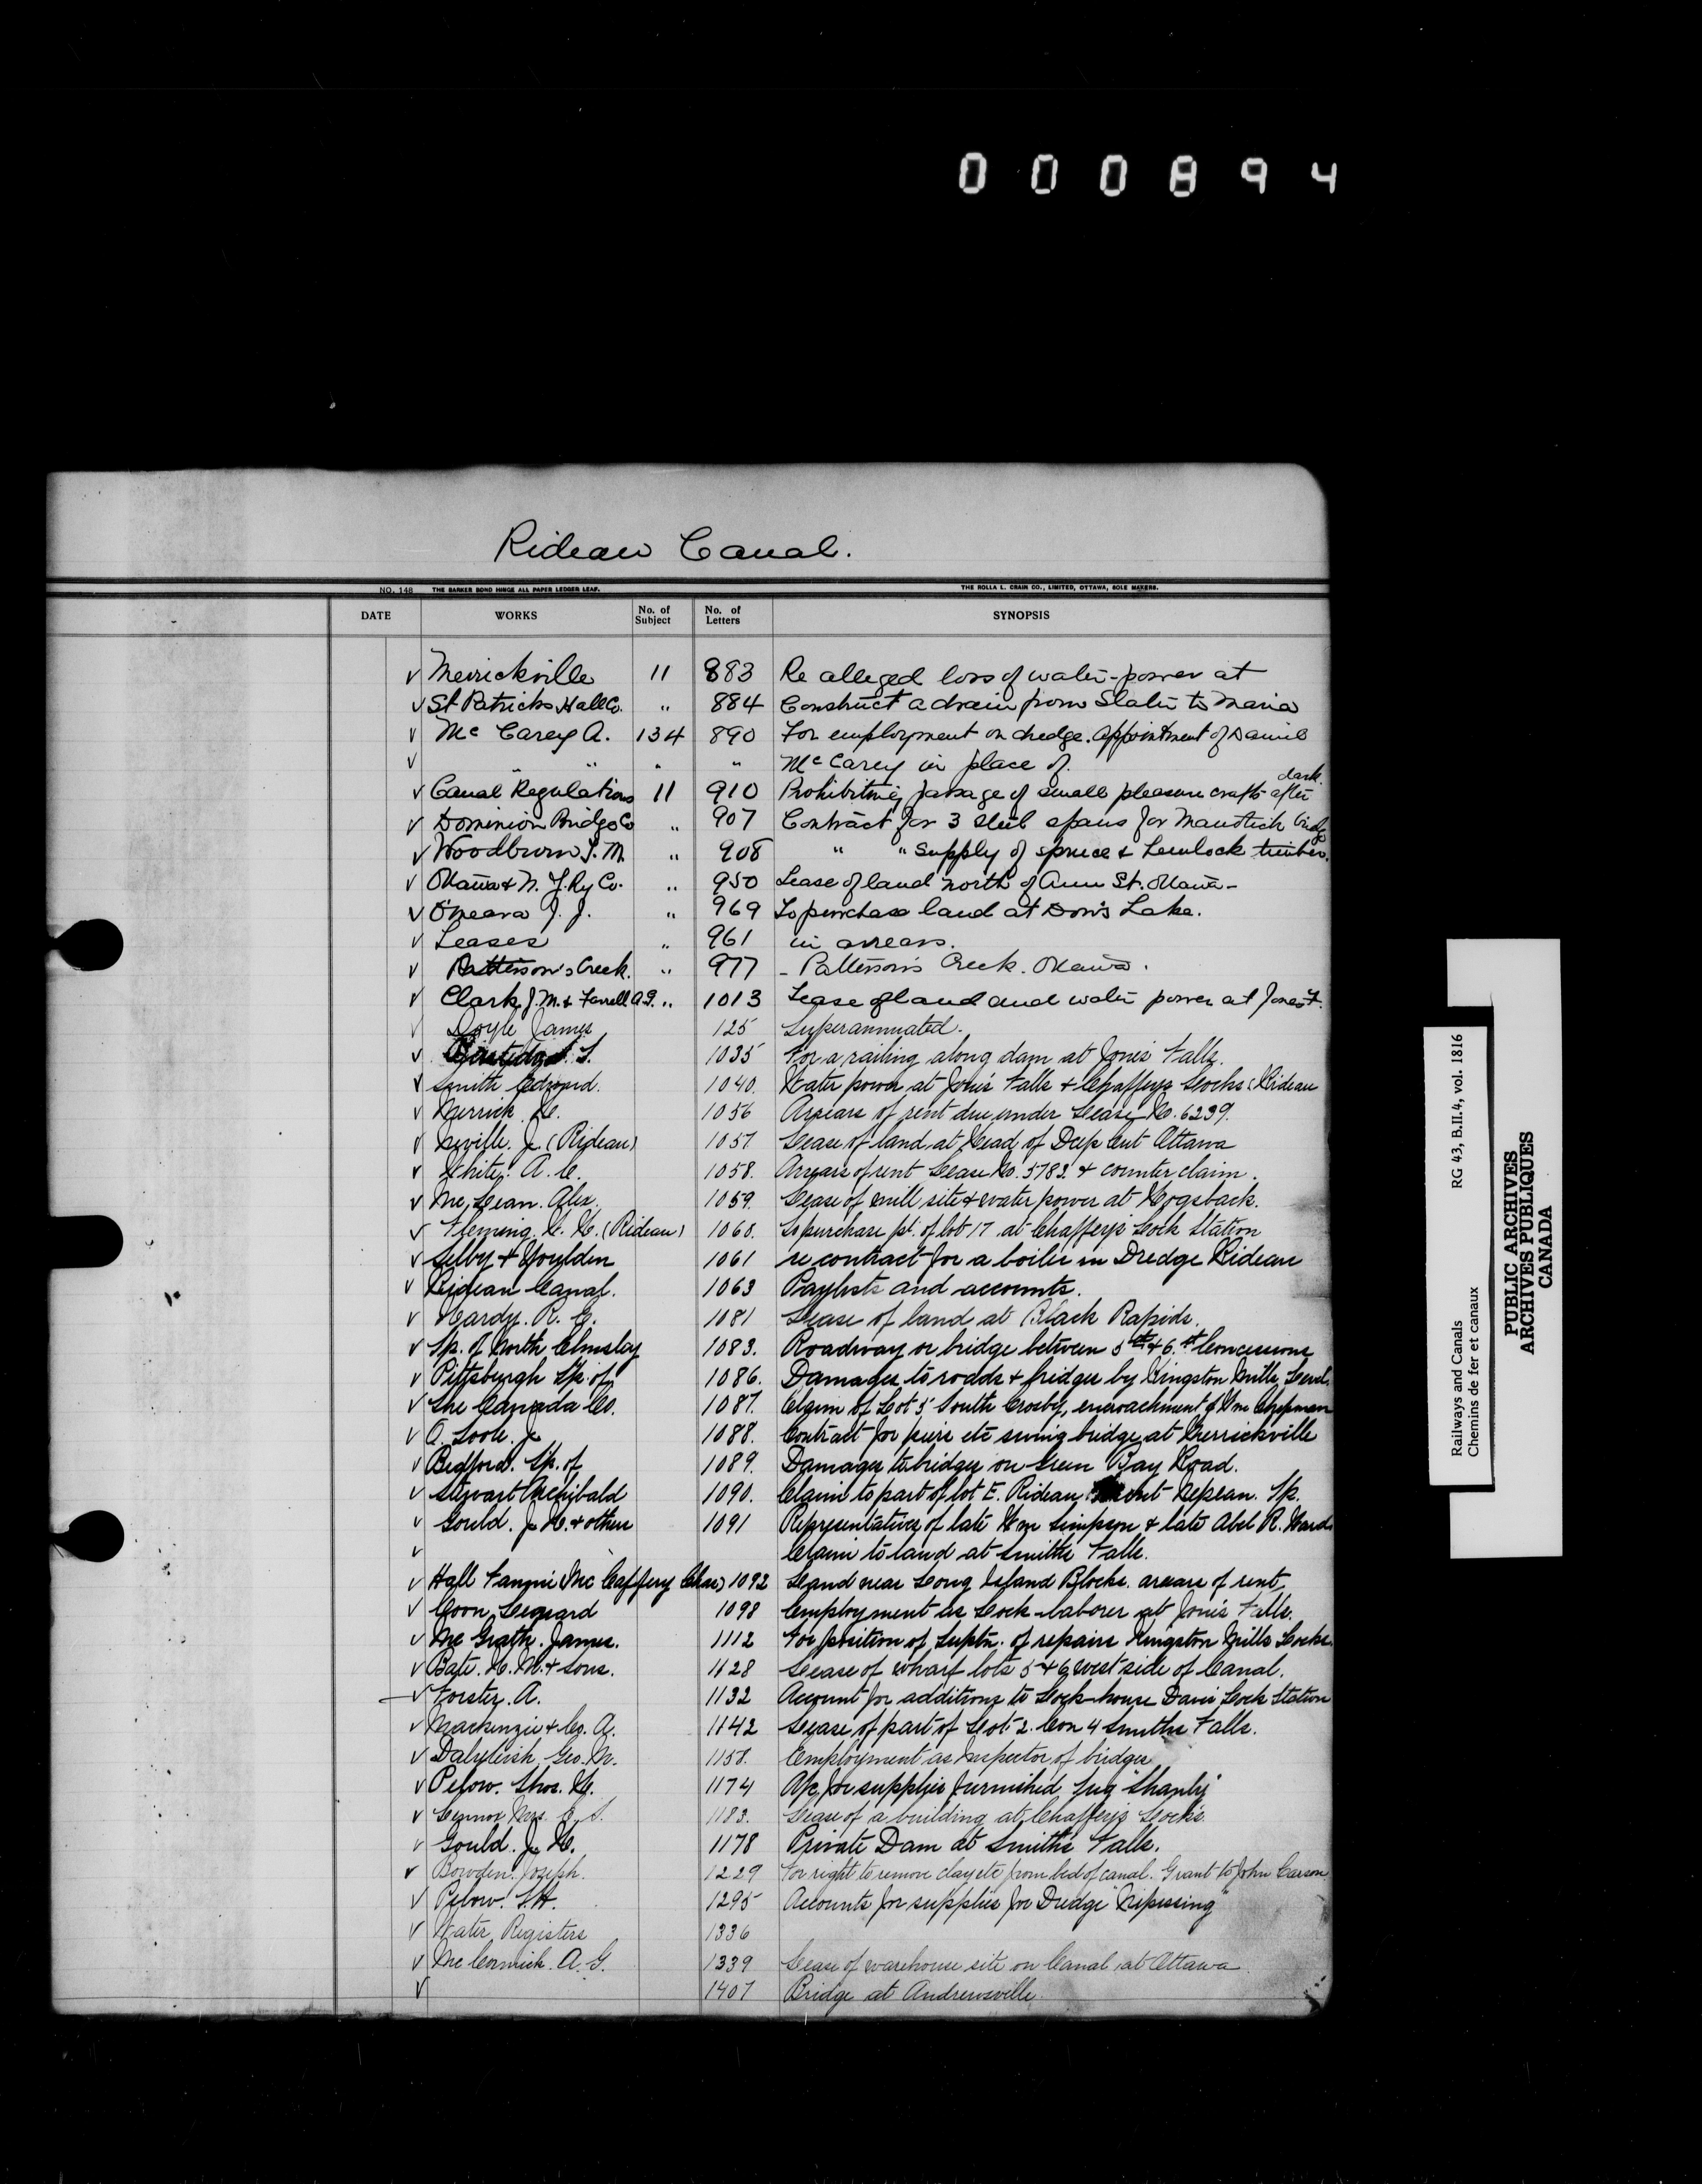 000894
Rideau Canal.
NO. 148 THE BARKER BOND HINGE ALL PAPER LEDGER LEAF. THE ROLLA L. CRAIN CO., LIMITED, OTTAWA, SOLE MAKERS.
DATE WORKS No. of Subject No. of Letters SYNOPSIS
√ Merrickville 11 883 Re alleged loss of water-power at
√ St Patricks Hall Co. " 884 Construct a drain from Slater to Maria
√ Mc Carey A. 134 890 For employment on dredge. Appointment of Daniel
√ " " " " McCarey in place of.
√ Canal Regulations 11 910 Prohibiting passage of small pleasure crafts after dark.
√ Dominion Bridge Co " 907 Contract for 3 steel spans for Manotick bridge
√ Woodburn T. M. " 908 " " Supply of spruce & Hemlock timber.
√ Ottawa & N. Y. Ry Co. " 950 Lease of land north of Ann St. Ottawa-
√ O'Meara J. J. " 969 To purchase land at Dow's Lake.
√ Leases " 961 in arrears.
√ Patterson's Creek. " 977 - Patterson's Creek. Ottawa.
√ Clark J. M. & Farrell A. G. " 1013 Lease of land and water power at Jones F.
√ Doyle James 125 Superannuated.
√ 1035 For a railing along dam at Jones Falls.
√ Smith Edward. 1040. Water power at Jones Falls & Chaffeys Locks (Rideau
√ Merrick. 1056 Arrears of rent due under Lease No. 6239.
√ Neville. J. (Rideau) 1057. Lease of land at Head of Deep Cut Ottawa
√ White. A. C. 1058. Arrears of rent Lease No. 5783. & counter claim.
√ McLean. Alex. 1059. Lease of mill site & water power at Hogsback.
√ Fleming. (Rideau) 1060. To purchase pt. of lot 17 at Chaffey's Lock Station
√ Selby & Youlden 1061 re contract for a boiler in Dredge Rideau
√ Rideau Canal. 1063 Paylists and accounts.
√ Hardy. R. 1081 Lease of land at Black Rapids.
√ Tp. of North Elmsley 1083. Roadway or bridge between 5th & 6.th Concessions
√ Pittsburgh Tp. of 1086. Damages to roads & bridges by Kingston Mills Level.
√ The Canada Co. 1087. Claim of Lot 5 South Crosby, encroachment of Wm Chapman
√ A. Foote. Jr 1088. Contract for piers etc swing bridge at Merrickville
√ Bedford. Tp. of 1089. Damages to bridges on Green Bay Road.
√ Stewart Archibald 1090. Claim to part of lot E. Rideau front Nepean. Tp.
√ Gould. J. H. & others 1091 Representatives of late Wm Simpson & late Abel R. Ward.
√ Claim to land at Smiths Falls.
√ Hall Fannie (McCaffery Chas) 1092 Land near Long Island Blocks. arrears of rent
√ Coon, Leonard 1098 Employment as Lock-laborer at Jones Falls.
√ McGrath. James. 1112 For position of Suptn. of repairs Kingston Mills Locks.
√ Bate. H. N. & Sons. 1128 Lease of wharf lots 5 & 6 west side of Canal.
√ Forster. A. 1132 Account for additions to Lock-house Davis Lock Station
√ Mackenzie & Co. A. 1142 Lease of part of Lot 2. Con 4 Smiths Falls.
√ Dalgleish Geo. M. 1157. Employment as Inspector of bridges
√ Pelow. Thos. H. 1174 A/c for supplies furnished tug "Shanly"
√ Mrs. 1183. Lease of a building at Chaffey's Locks.
√ Gould. J. H. 1178 Private Dam at Smiths Falls.
√ Bowden. Joseph. 1229 For right to remove clay etc from bed of canal. Grant to John Carson
√ Pelow. T. H. 1295 Accounts for supplies for Dredge "Nipissing"
√ Water Registers 1336
√ McCormick. A. G. 1339 Lease of warehouse site on Canal at Ottawa.
√ 1407 Bridge at Andrewsville.
Railways and Canals RG 43, B.II.4, vol. 1816
Chemins de fer et canaux
PUBLIC ARCHIVES
ARCHIVES PUBLIQUES
CANADA